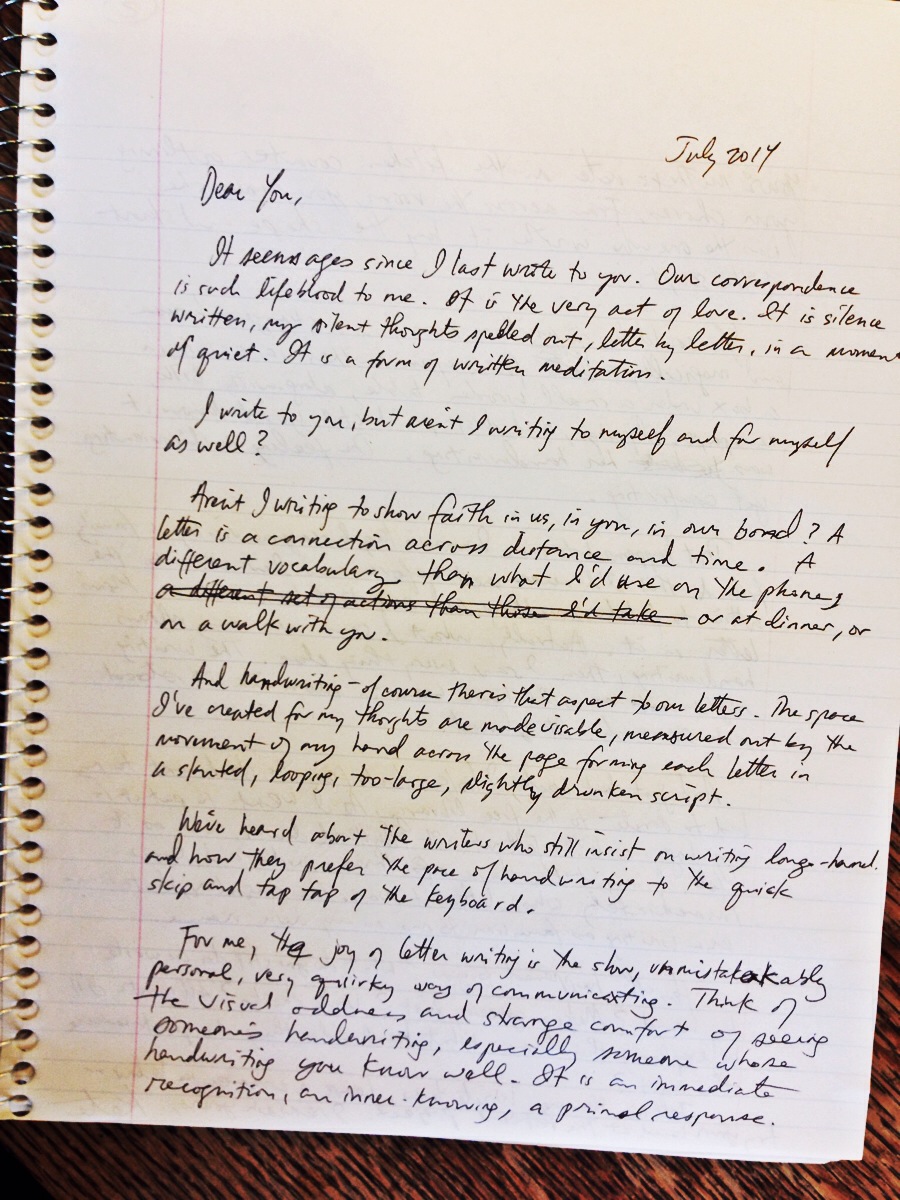 July 2014
Dear You,
It seems ages since I last wrote to you. Our correspondence
is such lifeblood to me. It is the very act of love. It is silence
written, my silent thoughts spelled out, letter by letter, in a moment
of quiet. It is a form of written meditation.
I write to you, but aren't I writing to myself and for myself
as well?
Aren't I writing to show faith in us, in you, in our bond? A
letter is a connection across distance and time. A
different vocabulary than what I'd use on the phone,
a different set of actions than those I'd take or at dinner, or
on a walk with you.
And handwriting - of course there's that aspect to our letters. The space
I've created for my thoughts are made visable, measured out by the
movement of my hand across the page forming each letter in
a slanted, looping, too-large, slightly drunken script.
We've heard about the writers who still insist on writing longe-hand.
and how they prefer the pace of handwriting to the quick
skip and tap tap of the keyboard.
For me, the joy of letter writing is the slow, unmistakably
personal, very quirky way of communicating. Think of
the visual oddness and strange comfort of seeing
someone's handwriting, especially someone whose
handwriting you know well. It is an immediate
recognition, an inner-knowing, a primal response.